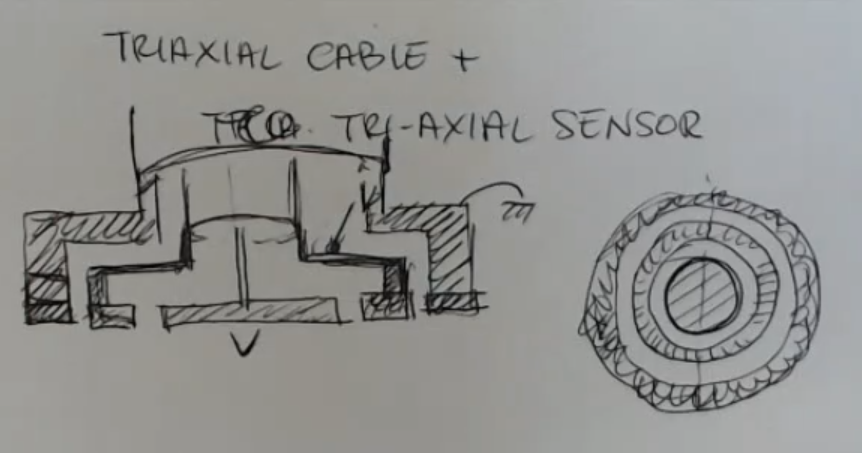 TRIAXIAL CABLE +
TRI-AXIAL SENSOR
V